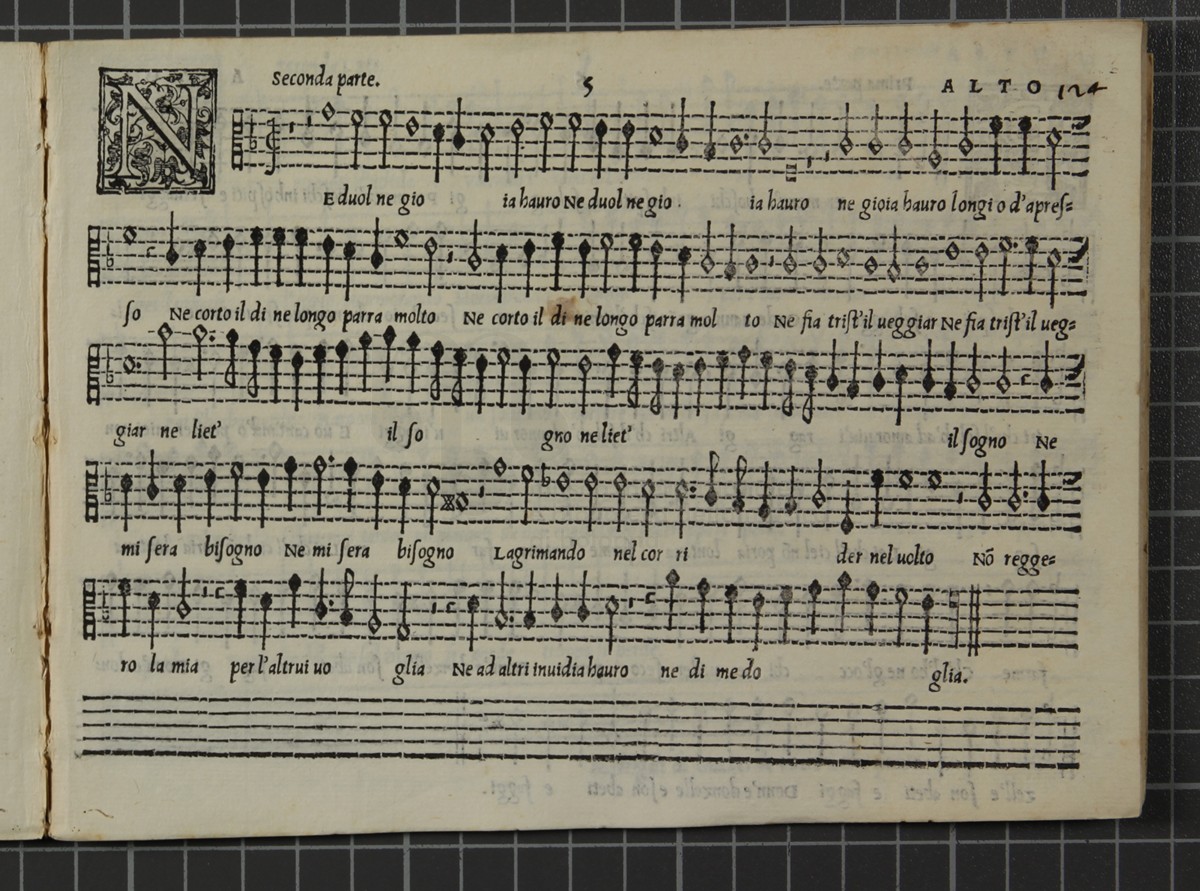 Seconda parte. 5 ALTO 124
NE duol ne gio ia hauro Ne duol ne gio ia hauro ne gioia hauro longi o d'apreſ=
ſo Ne corto il di ne longo parra molto Ne corto il di ne longo parra mol to Ne fia triſt'il ueggiar Ne fia triſt'il ueg=
giar ne liet' il ſo gno ne liet' il ſogno Ne
mi ſera biſogno Ne mi ſera biſogno Lagrimando nel cor ri der nel uolto Nō regge=
ro la mia per l'altrui uo glia Ne ad altri inuidia hauro ne di me do glia.